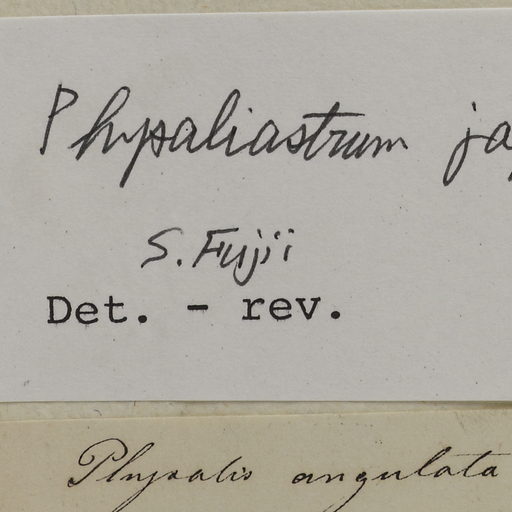 Physaliastrum ja
S. Fujii
Det. - rev.
Physalis angulata